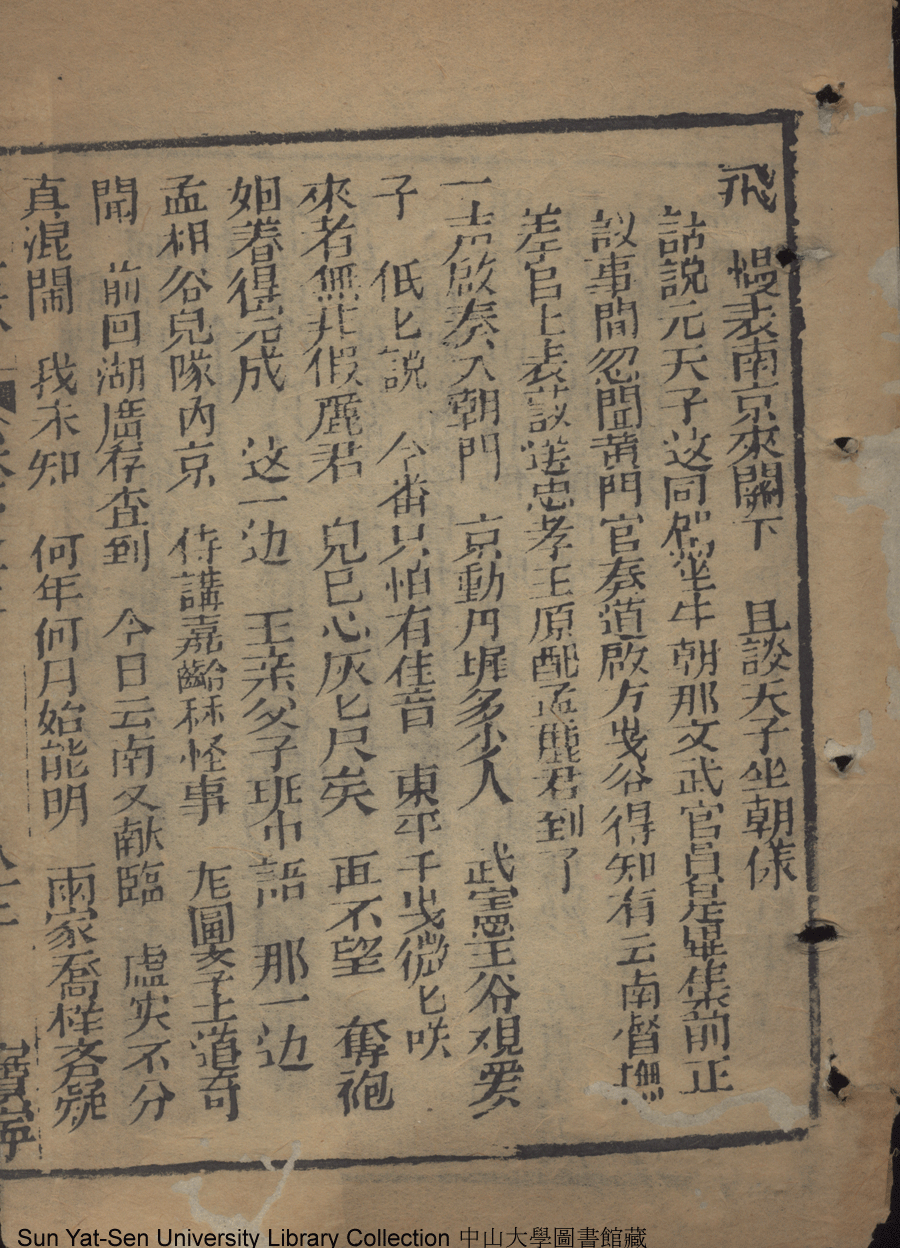 飛 慢表南京來闕下 且談天子坐朝儀
話説元天子这同 坐 朝那文武官員 畢集前正
議事間忽聞黄門官奏道啟万歲爷得知有云南督撫
差官上表 送忠孝王原配孟麗君到了
一声啟奏入朝門 京動丹墀多少人 武憲王爷覌爱
子 低匕説 今番只怕有佳音 東平千歲微匕咲
來者無非假麗君 兒已心灰匕尺矣 再不望 奪袍
姻眷得完成 这一边 王亲父子班中語 那一边
孟相爷兒隊内京 侍講嘉齡称怪事 龙圖 士道奇
聞 前回湖廣存查到 今日云南又献臨 虚实不分
真混閙 我未知 何年何月始能明 兩家喬樣吝疑
寳寜
Sun Yat-Sen University Library Collection 中山大學圖書館藏